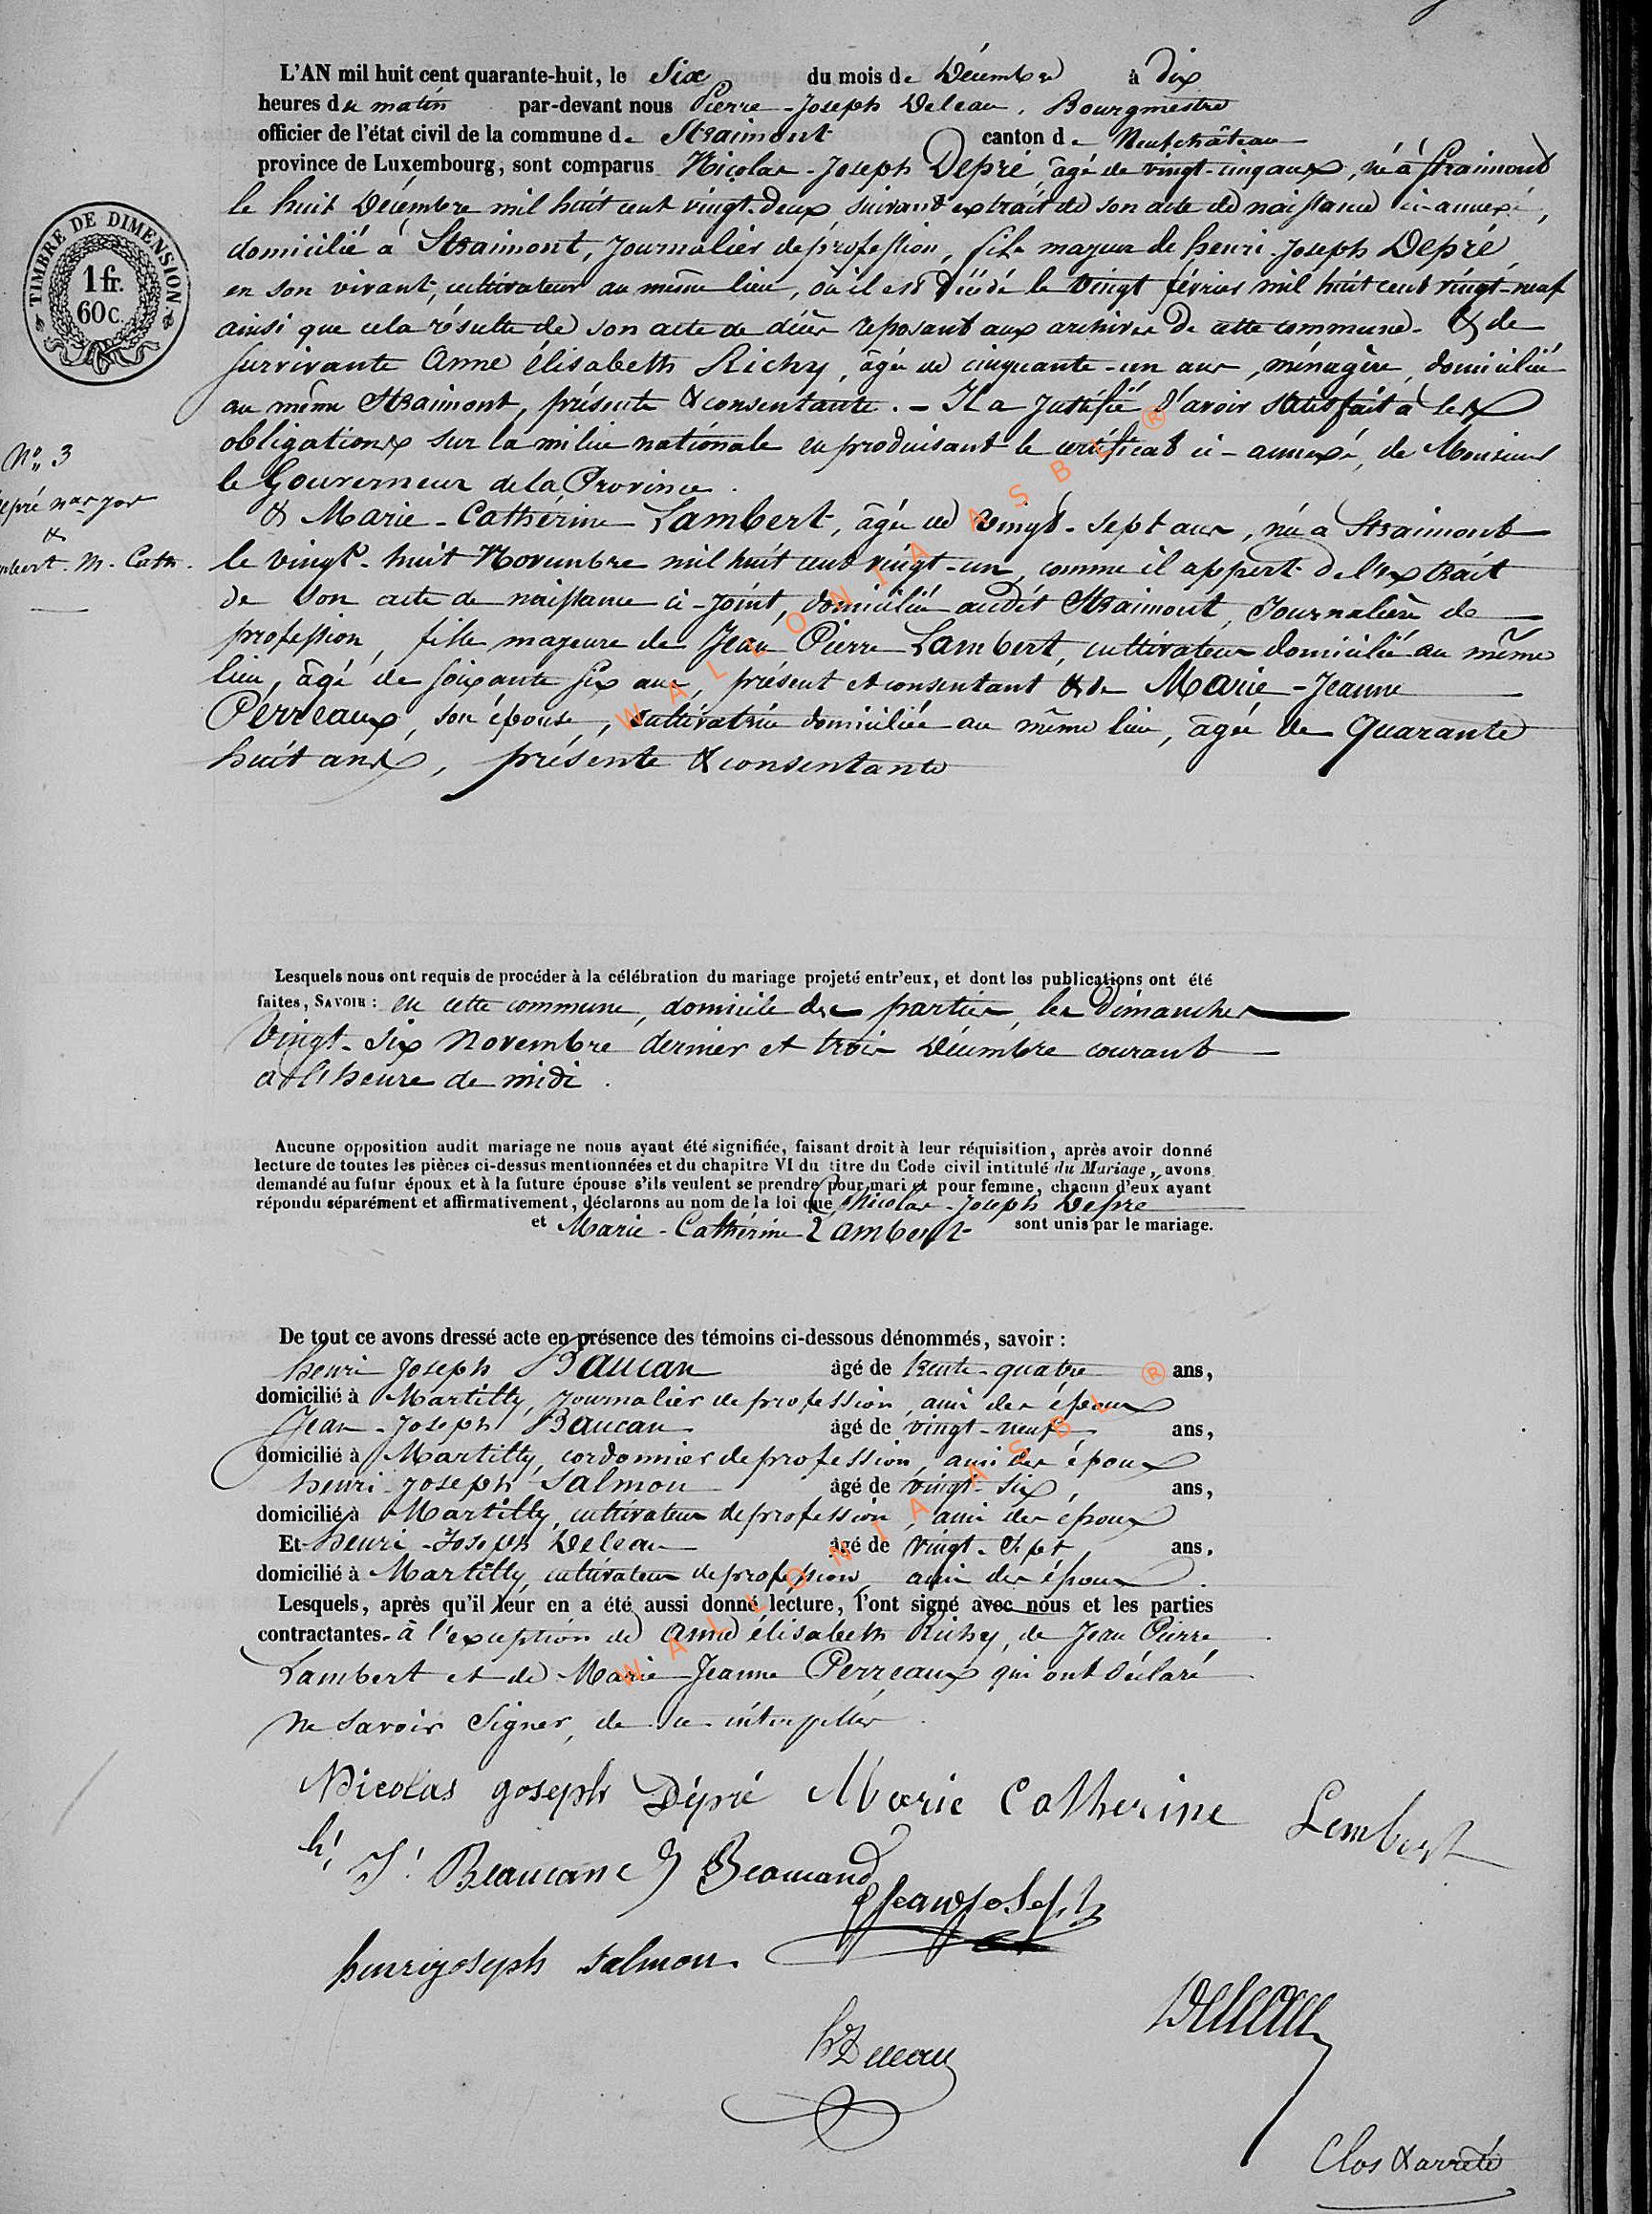 L'AN mil huit cent quarante-huit, le Six du mois de Décembre à dix
heures du matin par-devant nous Pierre-Joseph Deleau, Bourgmestre
officier de l'état civil de la commune de Straimont canton de Neufchâteau
province de Luxembourg, sont comparus Nicolas-Joseph Depré âgé de vingt-cinq ans, né à Straimont
le huit Décembre mil huit cent vingt-deux suivant extrait de son acte de naissance ci-annexé,
domicilié à Straimont, Journalier de profession, fils majeur de henri-Joseph Depré,
en son vivant, cultivateur au même lieu, où il est décédé le vingt février mil huit cent vingt-neuf
ainsi que cela résulte de son acte de décès reposant aux archives de cette commune. & de
survivante Anne élisabeth Richy, âgée de cinquante-un ans, ménagère, domiciliée
au même Straimont, présente & consentante. - Il a justifié d'avoir satisfait à ses
obligations sur la milice nationale en produisant le certificat ci-annexé, de Monsieur
le Gouverneur de la Province.
& Marie-Cathérine Lambert, âgée de vingt-sept ans, née à Straimont
le vingt-huit Novembre mil huit cent vingt-un, comme il appert de l'extrait
de son acte de naissance ci-joint, domiciliée audit Straimont, Journalière de
profession, fille majeure de Jean Pierre Lambert, cultivateur domicilié au même
lieu, âgé de soixante six ans, présent et consentant & de Marie-Jeanne
Perreaux, son épouse, cultivatrice domiciliée au même lieu, âgée de quarante
huit ans, présente & consentante
TIMBRE DE DIMENSION
1 fr.
60 c.
No 3
epré nas jos
&
mbert. M. Cath.
Lesquels nous ont requis de procéder à la célébration du mariage projeté entr'eux, et dont les publications ont été
faites, SAVOIR : en cette commune, domicile des parties, les Dimanches
vingt-six novembre dernier et trois Décembre courant
à l'heure de midi.
Aucune opposition audit mariage ne nous ayant été signifiée, faisant droit à leur réquisition, après avoir donné
lecture de toutes les pièces ci-dessus mentionnées et du chapitre VI du titre du Code civil intitulé du Mariage, avons
demandé au futur époux et à la future épouse s'ils veulent se prendre pour mari et pour femme, chacun d'eux ayant
répondu séparément et affirmativement, déclarons au nom de la loi que Nicolas-Joseph Depré
et Marie-Cathérine Lambert sont unis par le mariage.
De tout ce avons dressé acte en présence des témoins ci-dessous dénommés, savoir :
henri Joseph Baucan âgé de trente-quatre ans,
domicilié à Martilly, journalier de profession, ami des époux
Jean-Joseph Baucan âgé de vingt-neuf ans,
domicilié à Martilly, cordonnier de profession, ami des époux
henri-joseph Salmon âgé de vingt-six, ans,
domicilié à Martilly, cultivateur de profession, ami des époux
Et henri-Joseph Deleau âgé de vingt-sept ans.
domicilié à Martilly, cultivateur de profession, ami des époux.
Lesquels, après qu'il leur en a été aussi donné lecture, l'ont signé avec nous et les parties
contractantes. à l'exception de Anne élisabeth Richy, de Jean Pierre
Lambert et de Marie Jeanne Perreaux qui ont déclaré
ne savoir signer, de ce interpellés.
Nicolas joseph Dépré Marie Catherine Lembert
h. J. Beaucant J Beaucand
Jean joseph
henri joseph salmon.
hJ Deleau
Deleau
Clos & arrêté
WALLONIA ASBL ®
WALLONIA ASBL ®